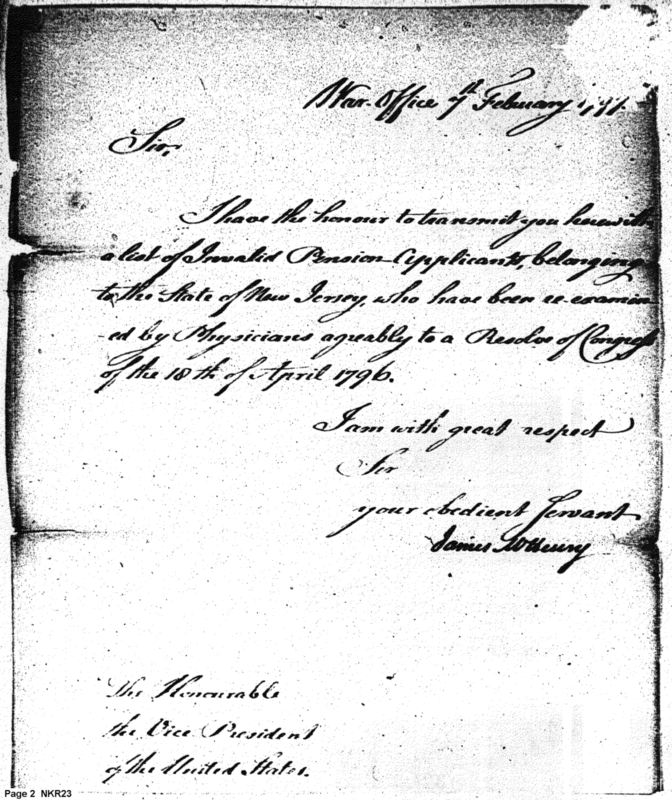 War Office 7th February 1797.
Sir,
I have the honour to transmit you herewith
a list of Invalid Pension Applicants, belonging
to the State of New Jersey, who have been re-examin
-ed by Physicians agreably to a Resolve of Congress
of the 18th of April 1796.
I am with great respect
Sir
your obedient Servant
James McHenry
The Honourable
the Vice President
of the United States.
Page 2 NKR23